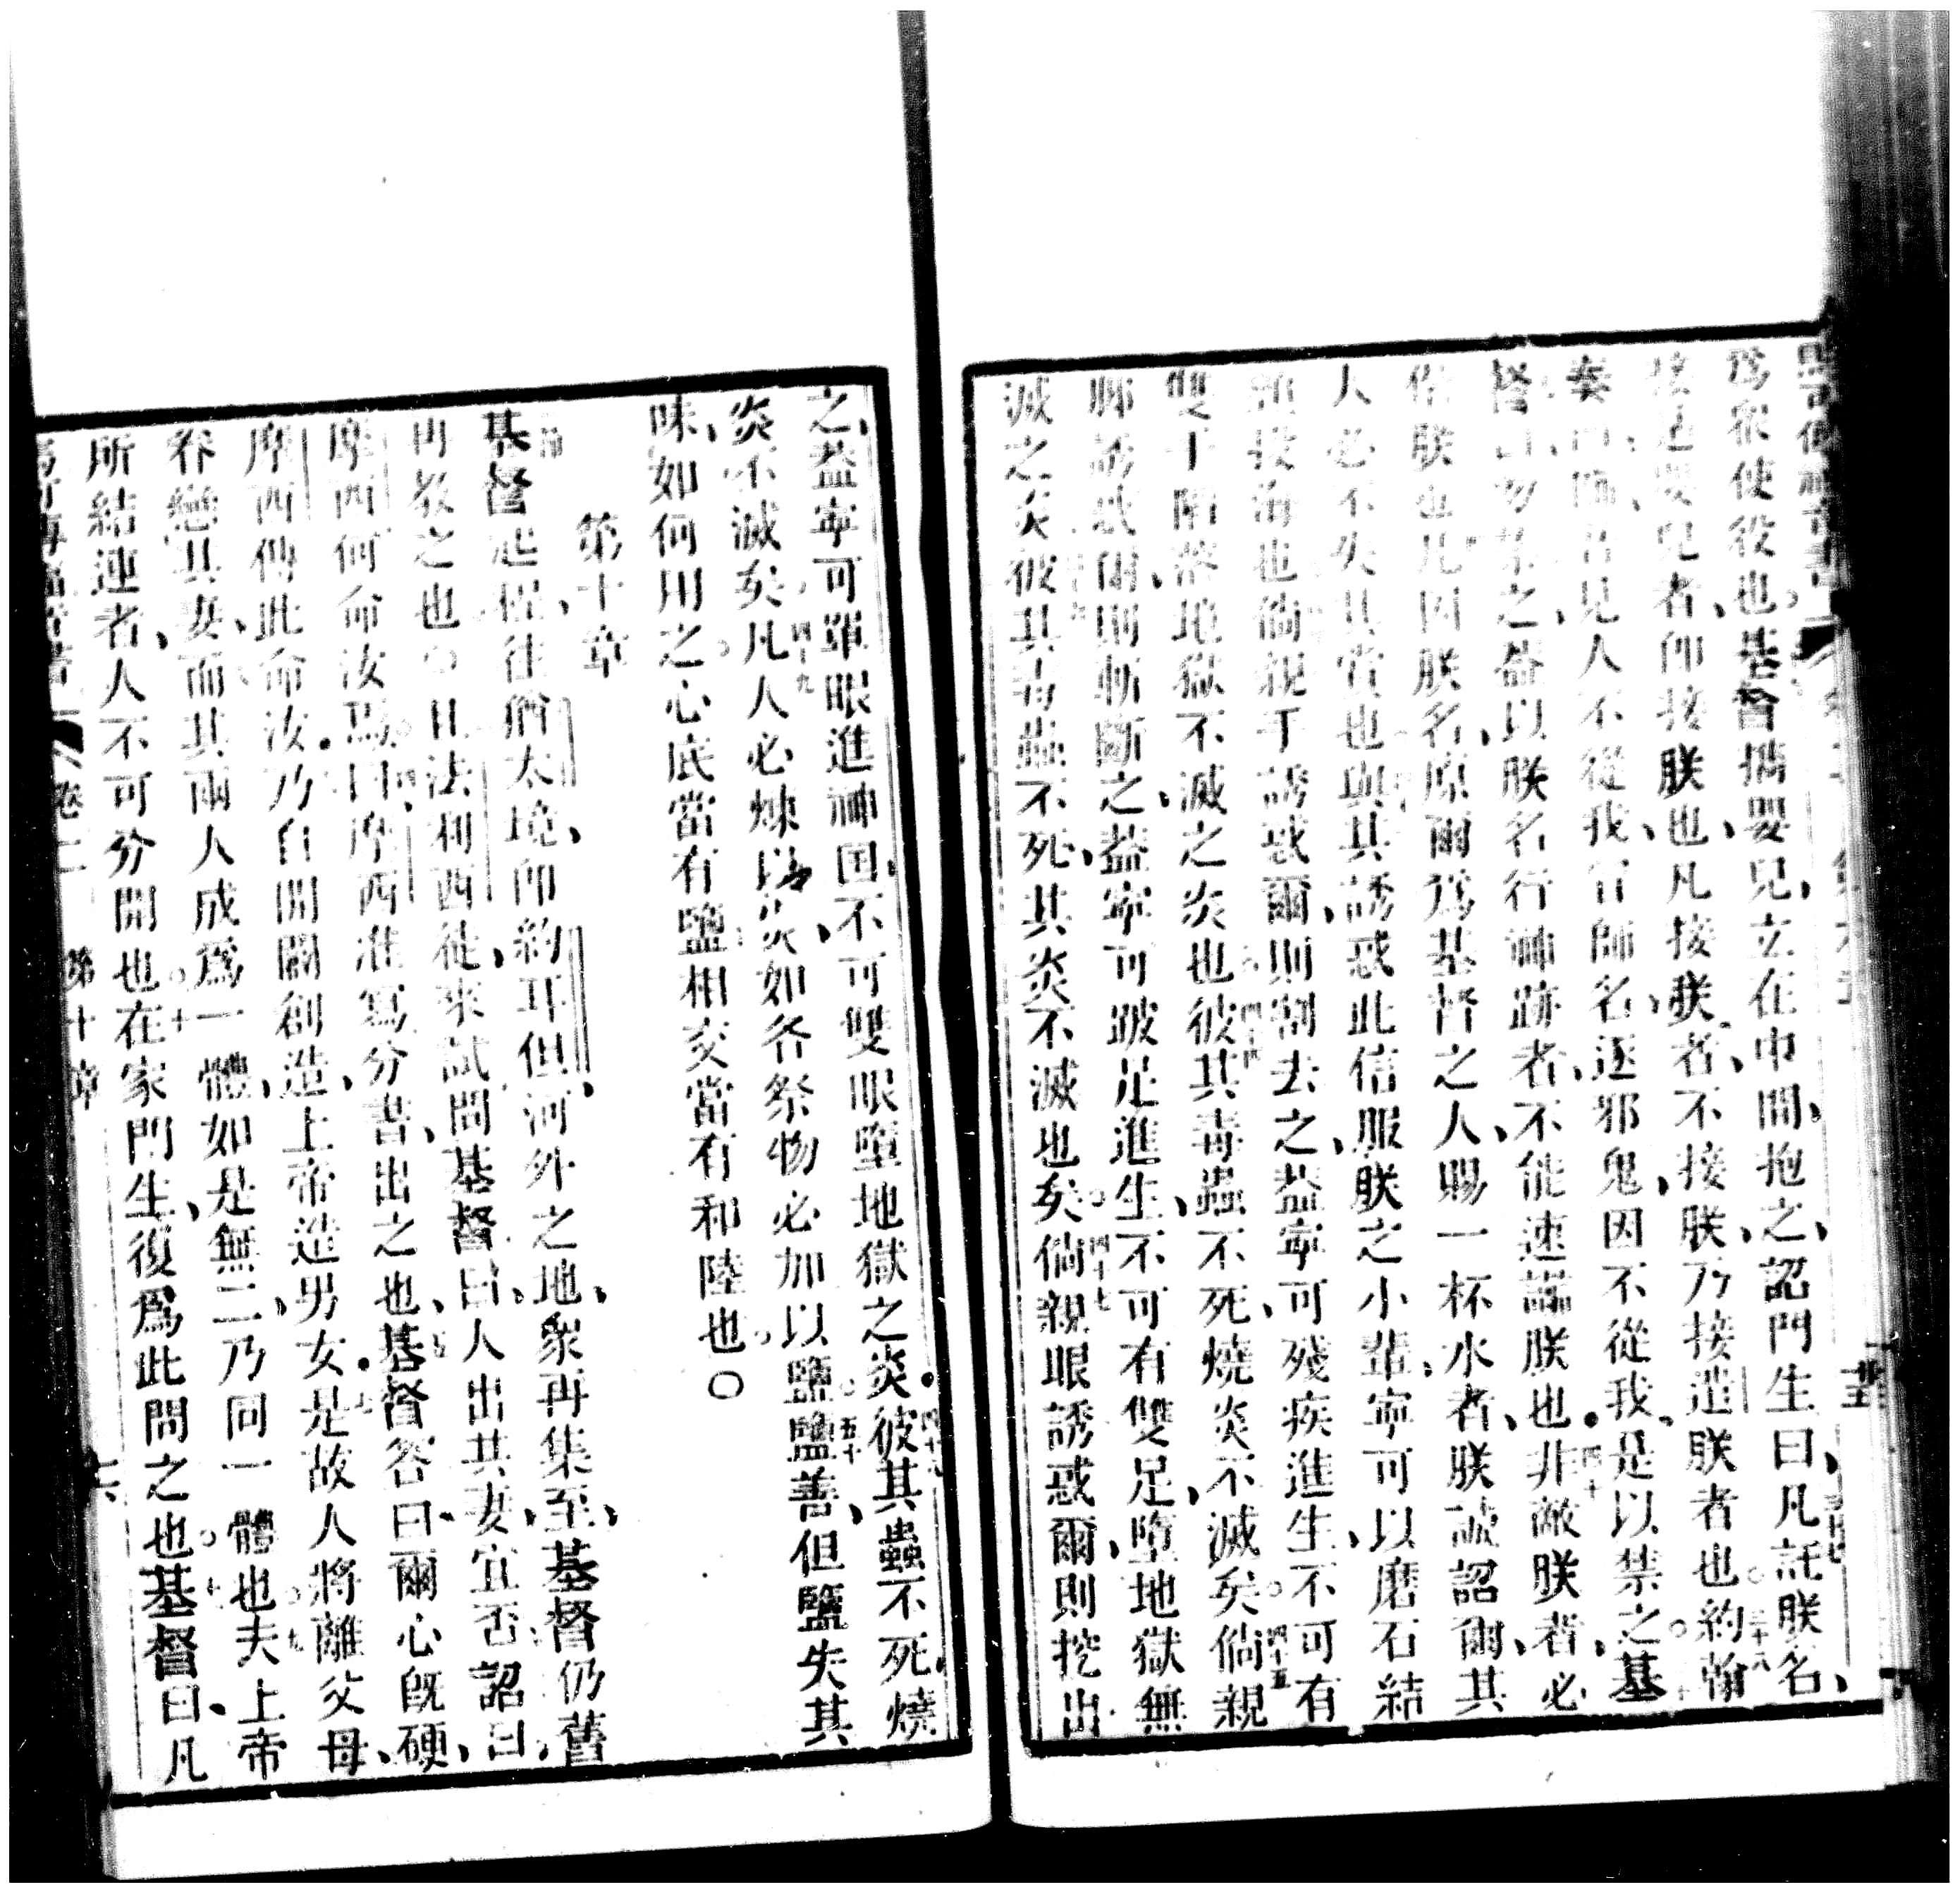 爲衆使役也基督攜嬰兒立在中間抱之詔門生曰凡託朕名
接這嬰兒者卽接朕也凡接朕者不接朕乃接遣朕者也約翰
奏曰師者見人不從我官師名逐邪鬼因不從我是以禁之基
督曰勿禁之蓋以朕名行神跡者不能速謡朕也非敵朕者必
偕朕也凡因朕名原爾爲基督之人賜一杯水者朕誠詔爾其
人必不失其賞也與其誘惑此信服朕之小輩寧可以磨石結
頸投海也倘親手誘惑爾則割去之蓋寧可殘疾進生不可有
雙手陷落地獄不滅之炎也彼其毒蟲不死燒炎不滅矣倘親
脚誘惑爾則斬斷之蓋寧可跛足進生不可有雙足墮地獄無
滅之炎彼其毒蟲不死其炎不滅也矣倘親眼誘惑爾則挖出
之蓋寧可單眼進神囯不可雙眼墮地獄之炎彼其蟲不死燒
炎不滅矣凡人必煉以炎如各祭物必加以鹽鹽善但鹽失其
味如何用之心底當有鹽相交當有和陸也〇
第十章
基督起程往猶太境卽約耳但河外之地衆再集至基督仍舊
再教之也〇且法利西徒來試問基督曰人出其妻宜否詔曰
摩西何命汝焉曰摩西准寫分書出之也基督答曰爾心旣硬
摩西傳此命汝乃自開闢創造上帝造男女是故人將離父母
眷戀其妻而其兩人成爲一體如是無二乃同一體也夫上帝
所結連者人不可分開也在家門生復爲此問之也基督曰凡
馬可傳福音書 卷二 第十章 七